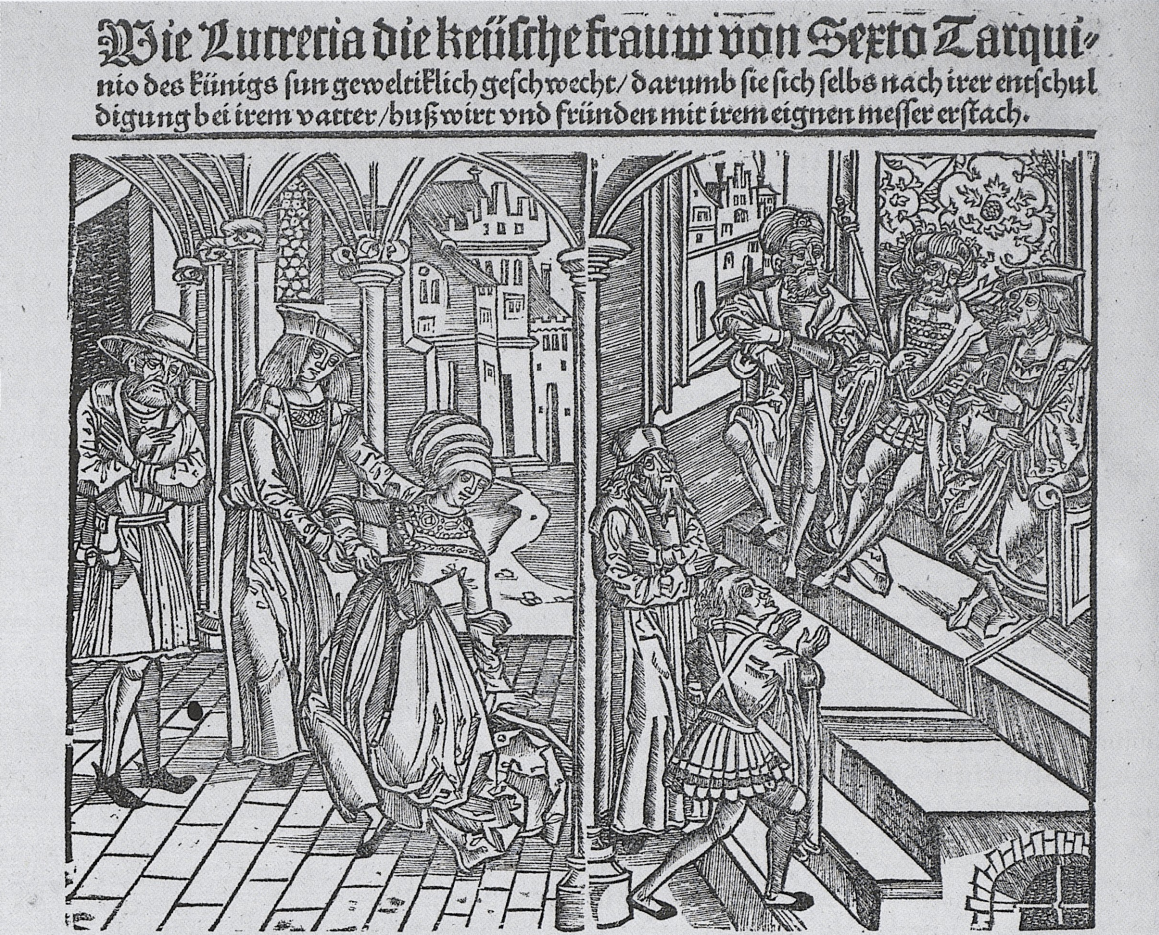 Wie Lucretia die keüsche frauw von Sexto Tarqui⸗
nio des künigs sun geweltiklich geschwecht/ darumb sie sich selbs nach irer entschul
digung bei irem vatter/ hußwirt vnd fründen mit irem eignen messer erstach.